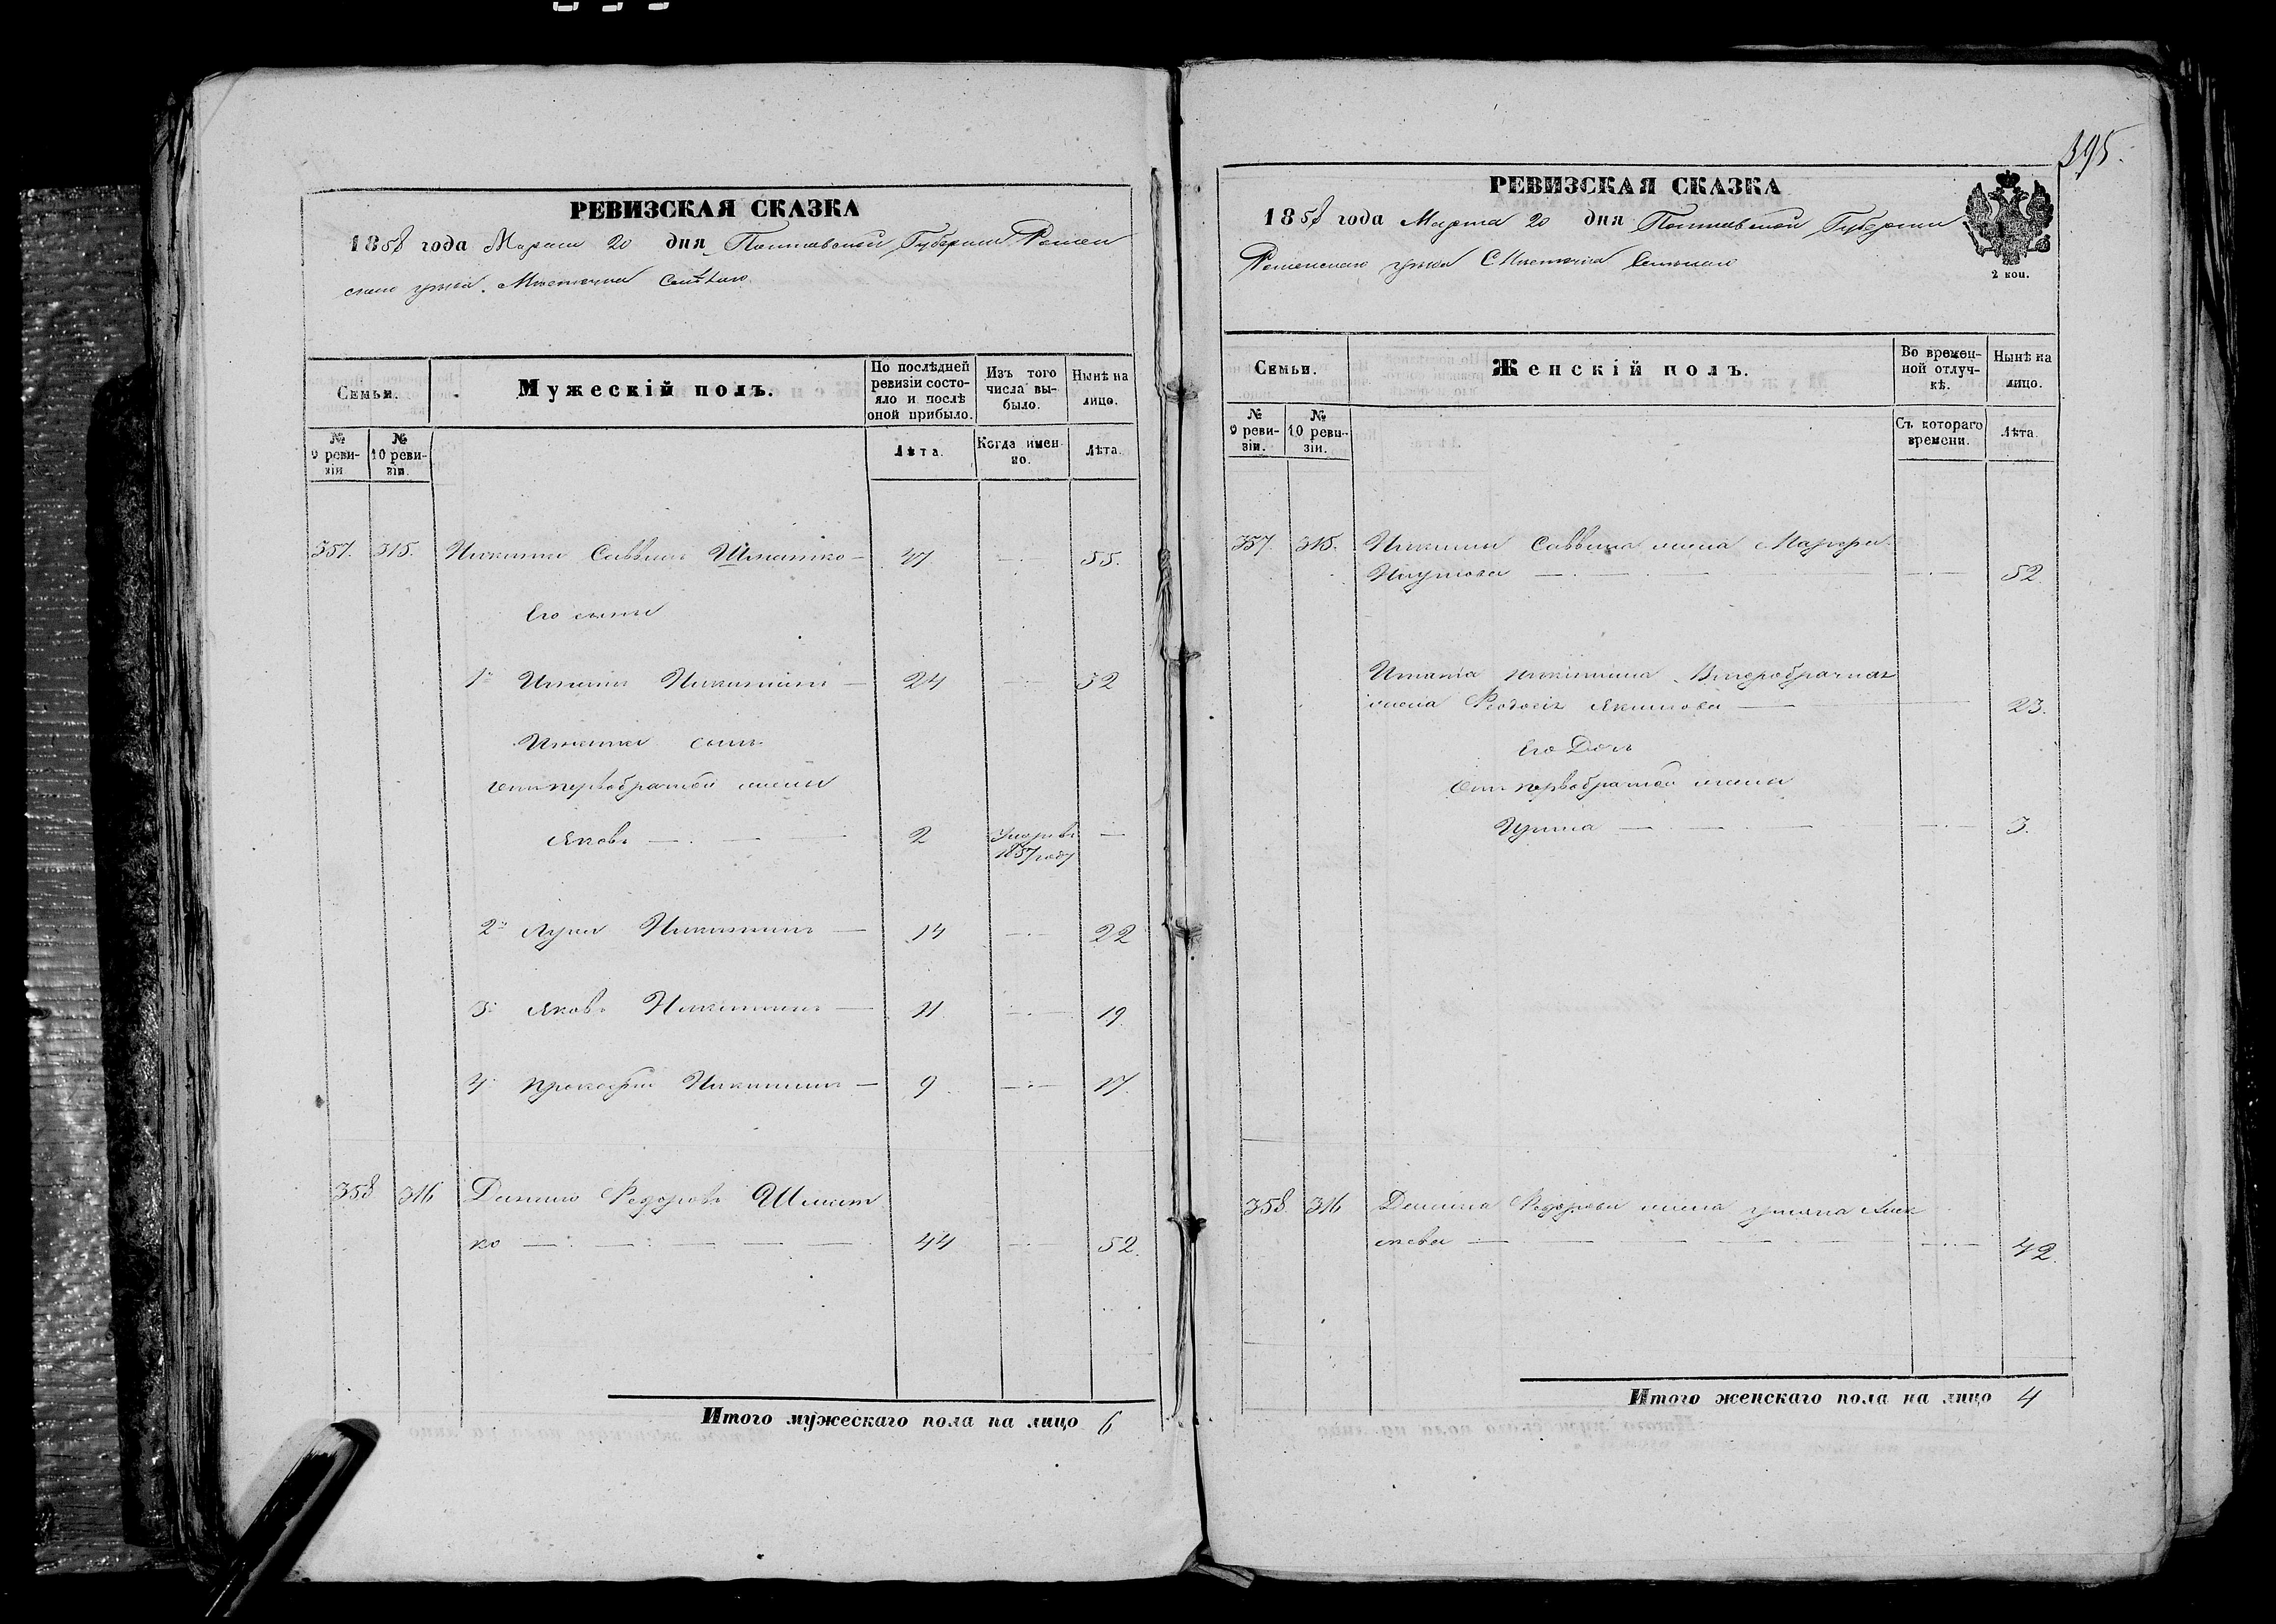 395.
РЕВИЗСКАЯ СКАЗКА
1858 года Марта 20 дня Полтавской Губернии Ромен
скаго уезда Местечка
Семьи.
Мужескій полъ.
По послѣдней ревизіи состояло и послѣ оной прибыло.
Изъ того числа выбыло.
Нынѣ на лицо.
№ 9 ревизіи.
№ 10 ревизіи.
Лѣта.
Когда именно.
Лѣта.
357. 315. Никита Саввинъ Шматко — 47 — 55.
Его сыны
1й Игнатъ Никитинъ — 24 — 32
Игната сынъ
отъ первобрачной жены
Яковъ — 2 умеръ въ 1857 году —
2й Лука Никитинъ — 14 — 22
3й Яковъ Никитинъ — 11 — 19.
4й Прокофій Никитинъ — 9 — 17.
358 316 Данило Федоровъ Шмат
ко — 44 — 52.
Итого мужескаго пола на лицо 6
РЕВИЗСКАЯ СКАЗКА
1858 года Марта 20 дня Полтавской Губернии
Роменскаго уезда Местечка
2 коп.
Семьи.
Женскій полъ.
Во временной отлучкѣ.
Нынѣ на лицо.
№ 9 ревизіи.
№ 10 ревизіи.
Съ котораго времени.
Лѣта.
357. 315. Никиты Саввина жена Марфа
Наумова — 52.
Игната Никитина Второбрачная
жена Феодосія Акимова — 23.
Его Дочь
Отъ первобрачной жены
Ирина — 3.
358. 316 Данила Федорова жена Ульяна Алек
— 42.
Итого женскаго пола на лицо 4